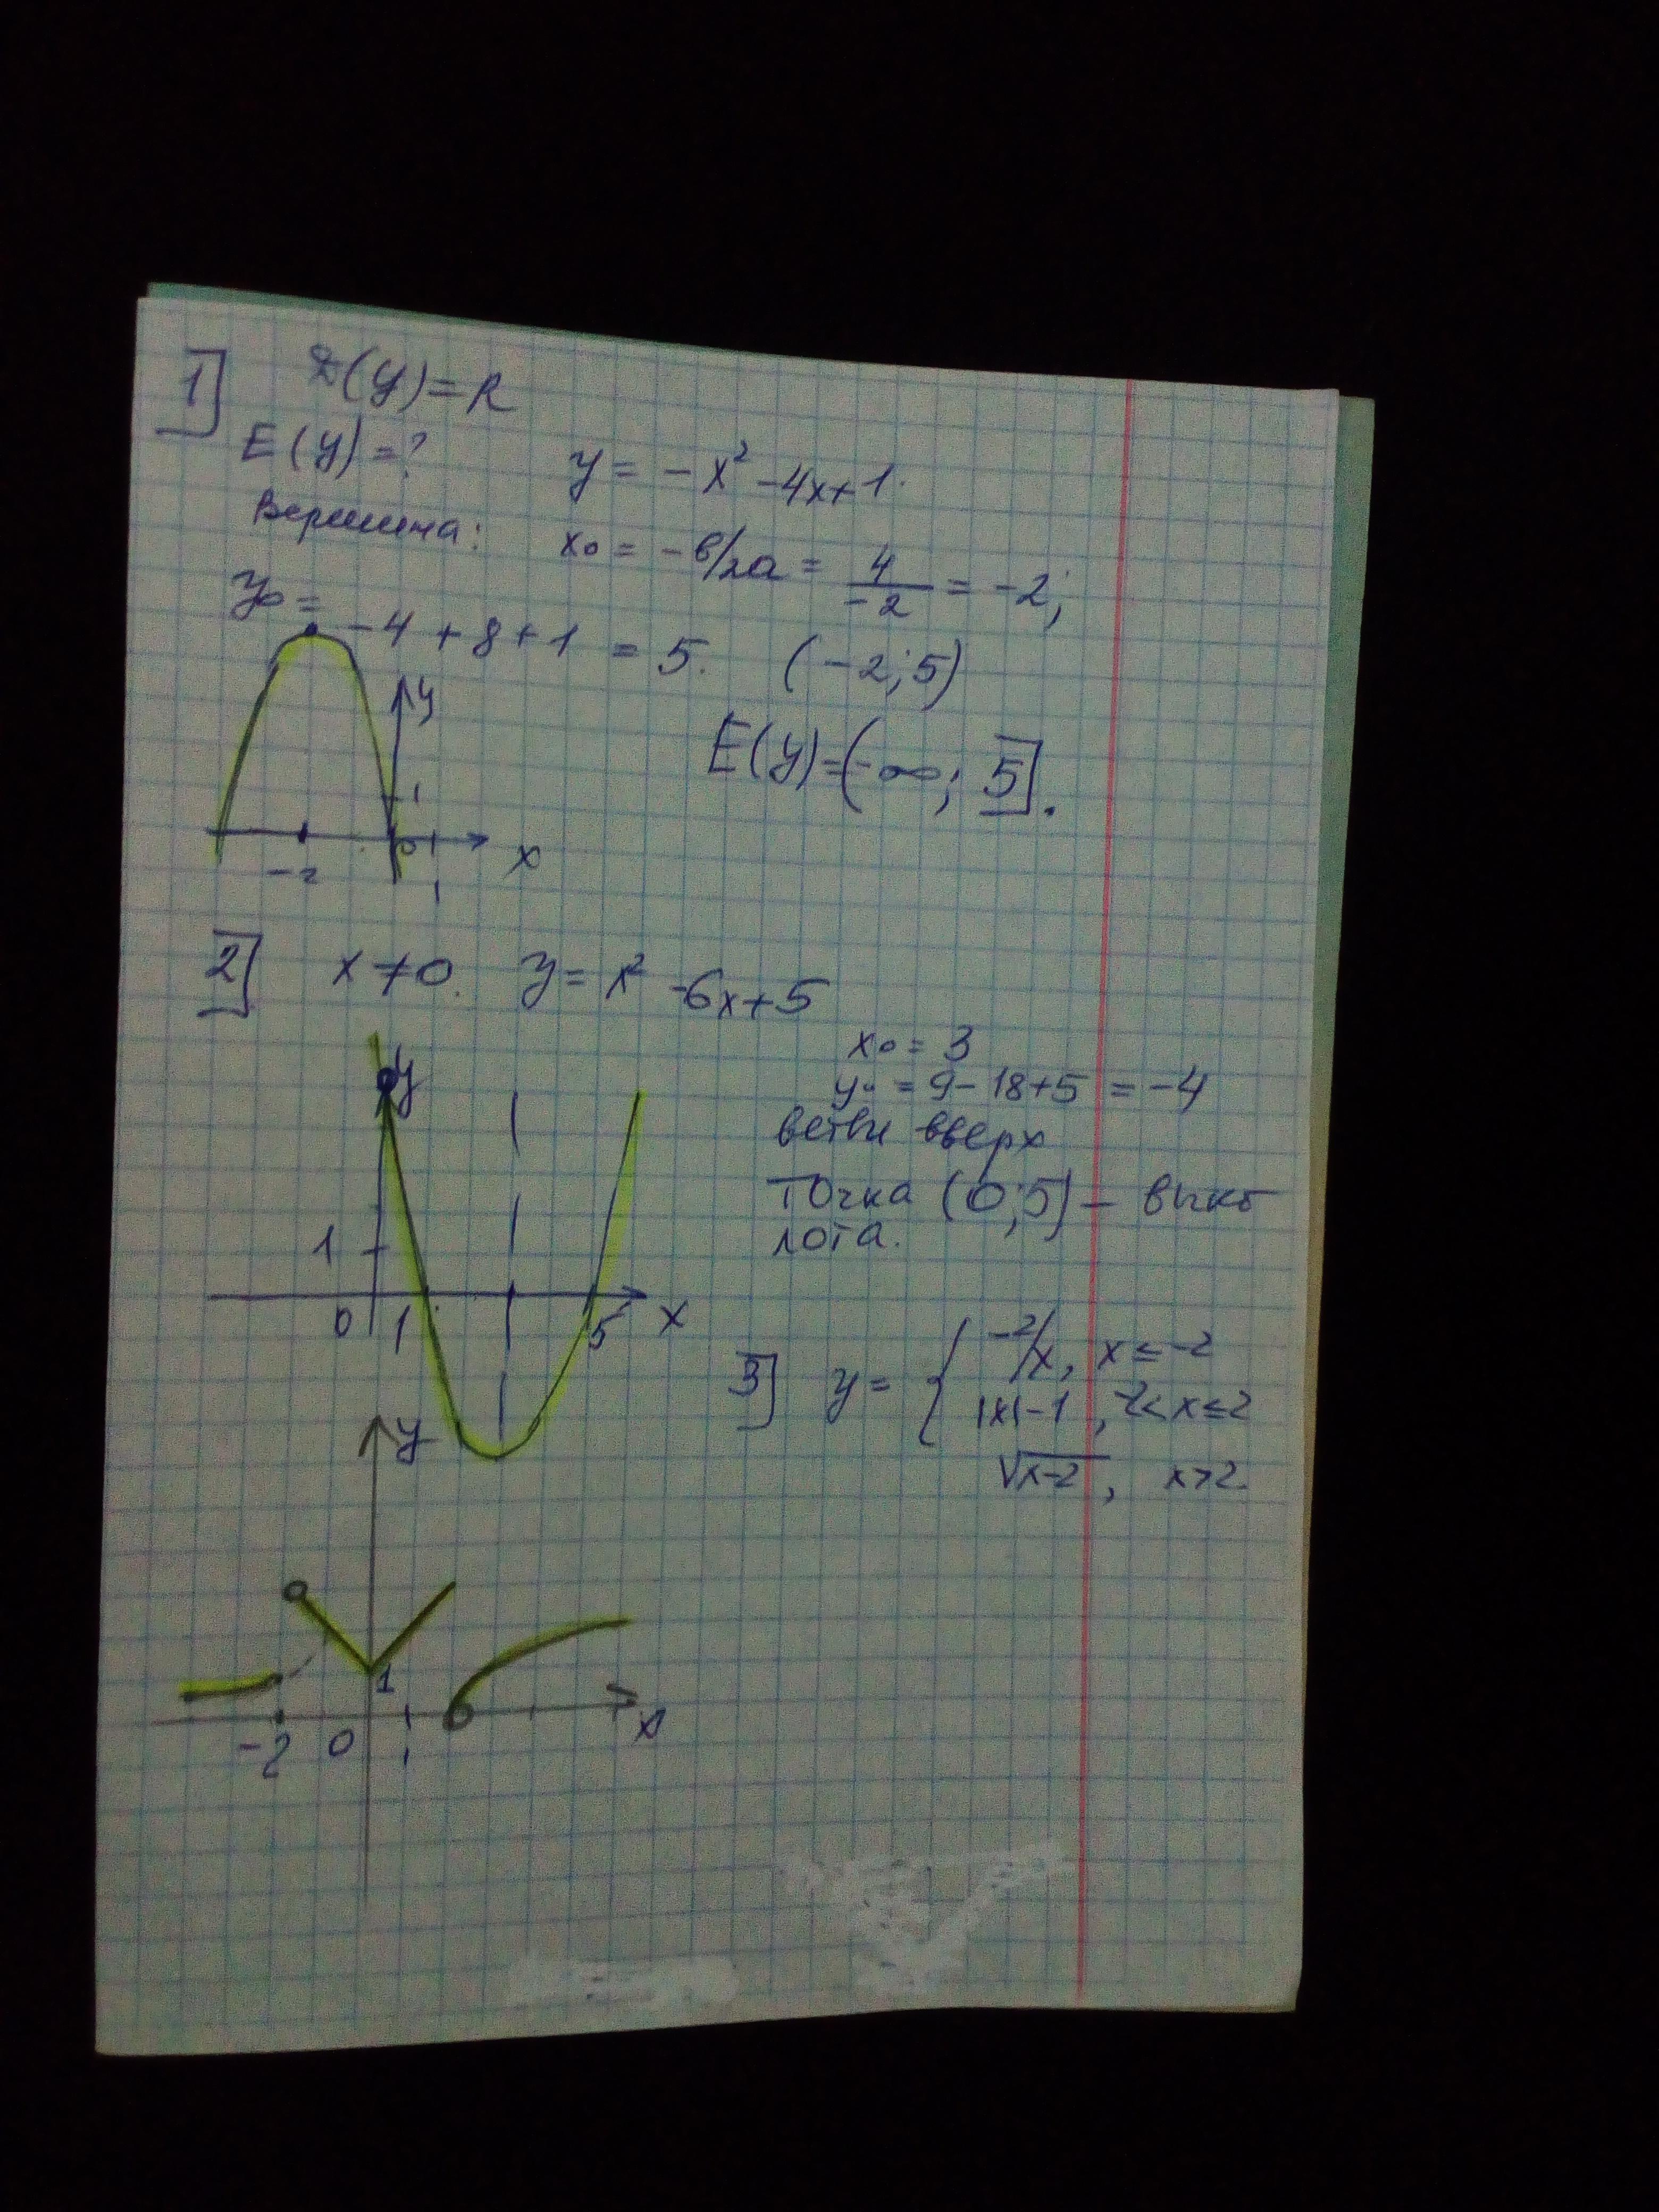 1] D(y)=R
E(y)=? y = -x² -4x+1.
Вершина: x₀ = -b/2a = 4/-2 = -2;
y₀ = -4 + 8 + 1 = 5. (-2; 5)
y
E(y)=(-∞; 5].
1
-2 0 1 x
2] x≠0. y= x² -6x+5
x₀ = 3
y
y₀ = 9-18+5 = -4
ветви вверх
Точка (0;5) - выко
лота.
1
0 1 5 x
3] y= { -2/x, x ≤ -2
|x|-1, -2< x ≤2
√x-2, x>2.
y
1
-2 0 1 x